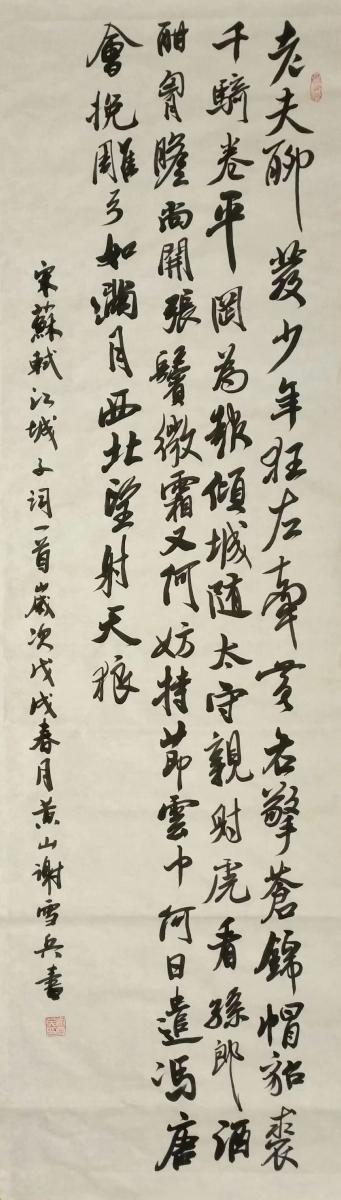 老夫聊發少年狂左牽黃右擎蒼錦帽貂裘
千騎卷平岡為報傾城隨太守親射虎看孫郎酒
酣胸膽尚開張鬢微霜又何妨持節雲中何日遣馮唐
會挽雕弓如滿月西北望射天狼
宋蘇軾江城子詞一首歲次戊戌春月黃山謝雪兵書